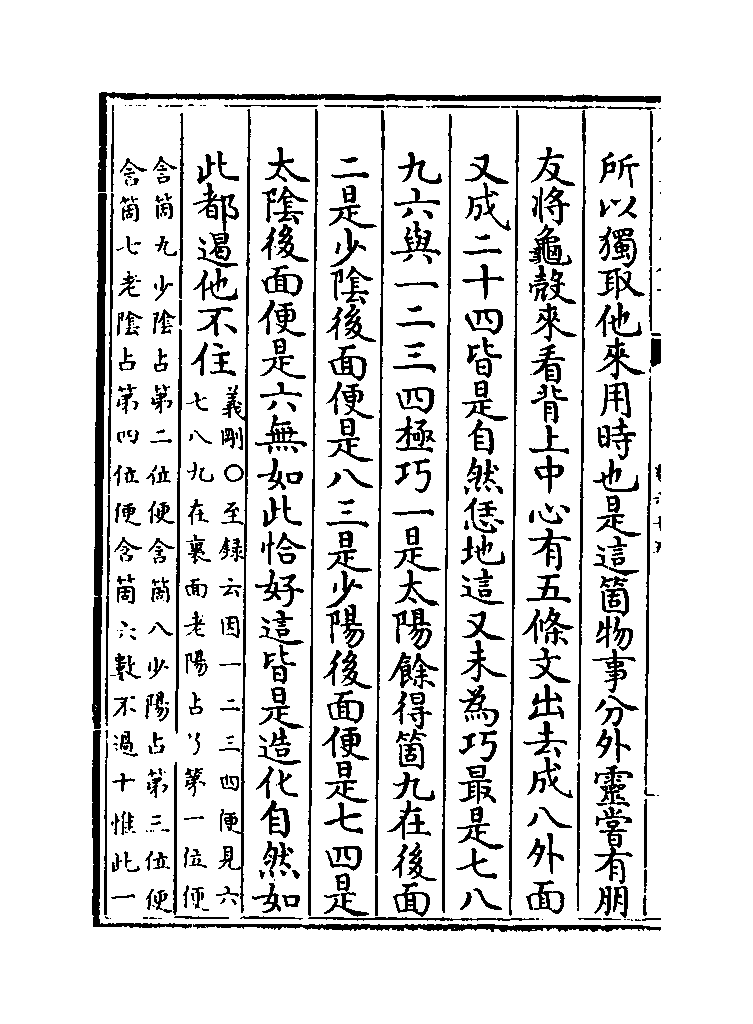 所以獨取他來用時也是這箇物事分外靈嘗有朋
友將龜殼來看背上中心有五條文出去成八外面
又成二十四皆是自然恁地這又未為巧最是七八
九六與一二三四極巧一是太陽餘得箇九在後面
二是少陰後面便是八三是少陽後面便是七四是
太陰後面便是六無如此恰好這皆是造化自然如
此都遏他不住
義剛〇至録云因一二三四便見六
七八九在裏面老陽占了第一位便
含箇九少陰占第二位便含箇八少陽占第三位便
含箇七老陰占第四位便含箇六數不過十惟此一